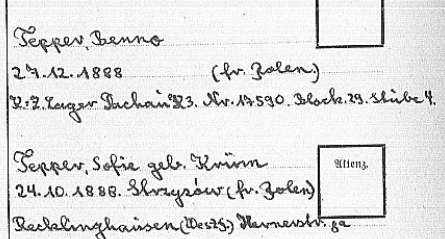 Tepper, Benno
27.12.1888 (fr. Polen)
K.-Z. Lager Dachau K3. Nr. 17590. Block. 29. Stube 4.
Tepper, Sofie geb. Krüm
Aktenz.
24.10.1888. Strzyżow (fr. Polen)
Recklinghausen (Westf.) Hernerstr. 9a